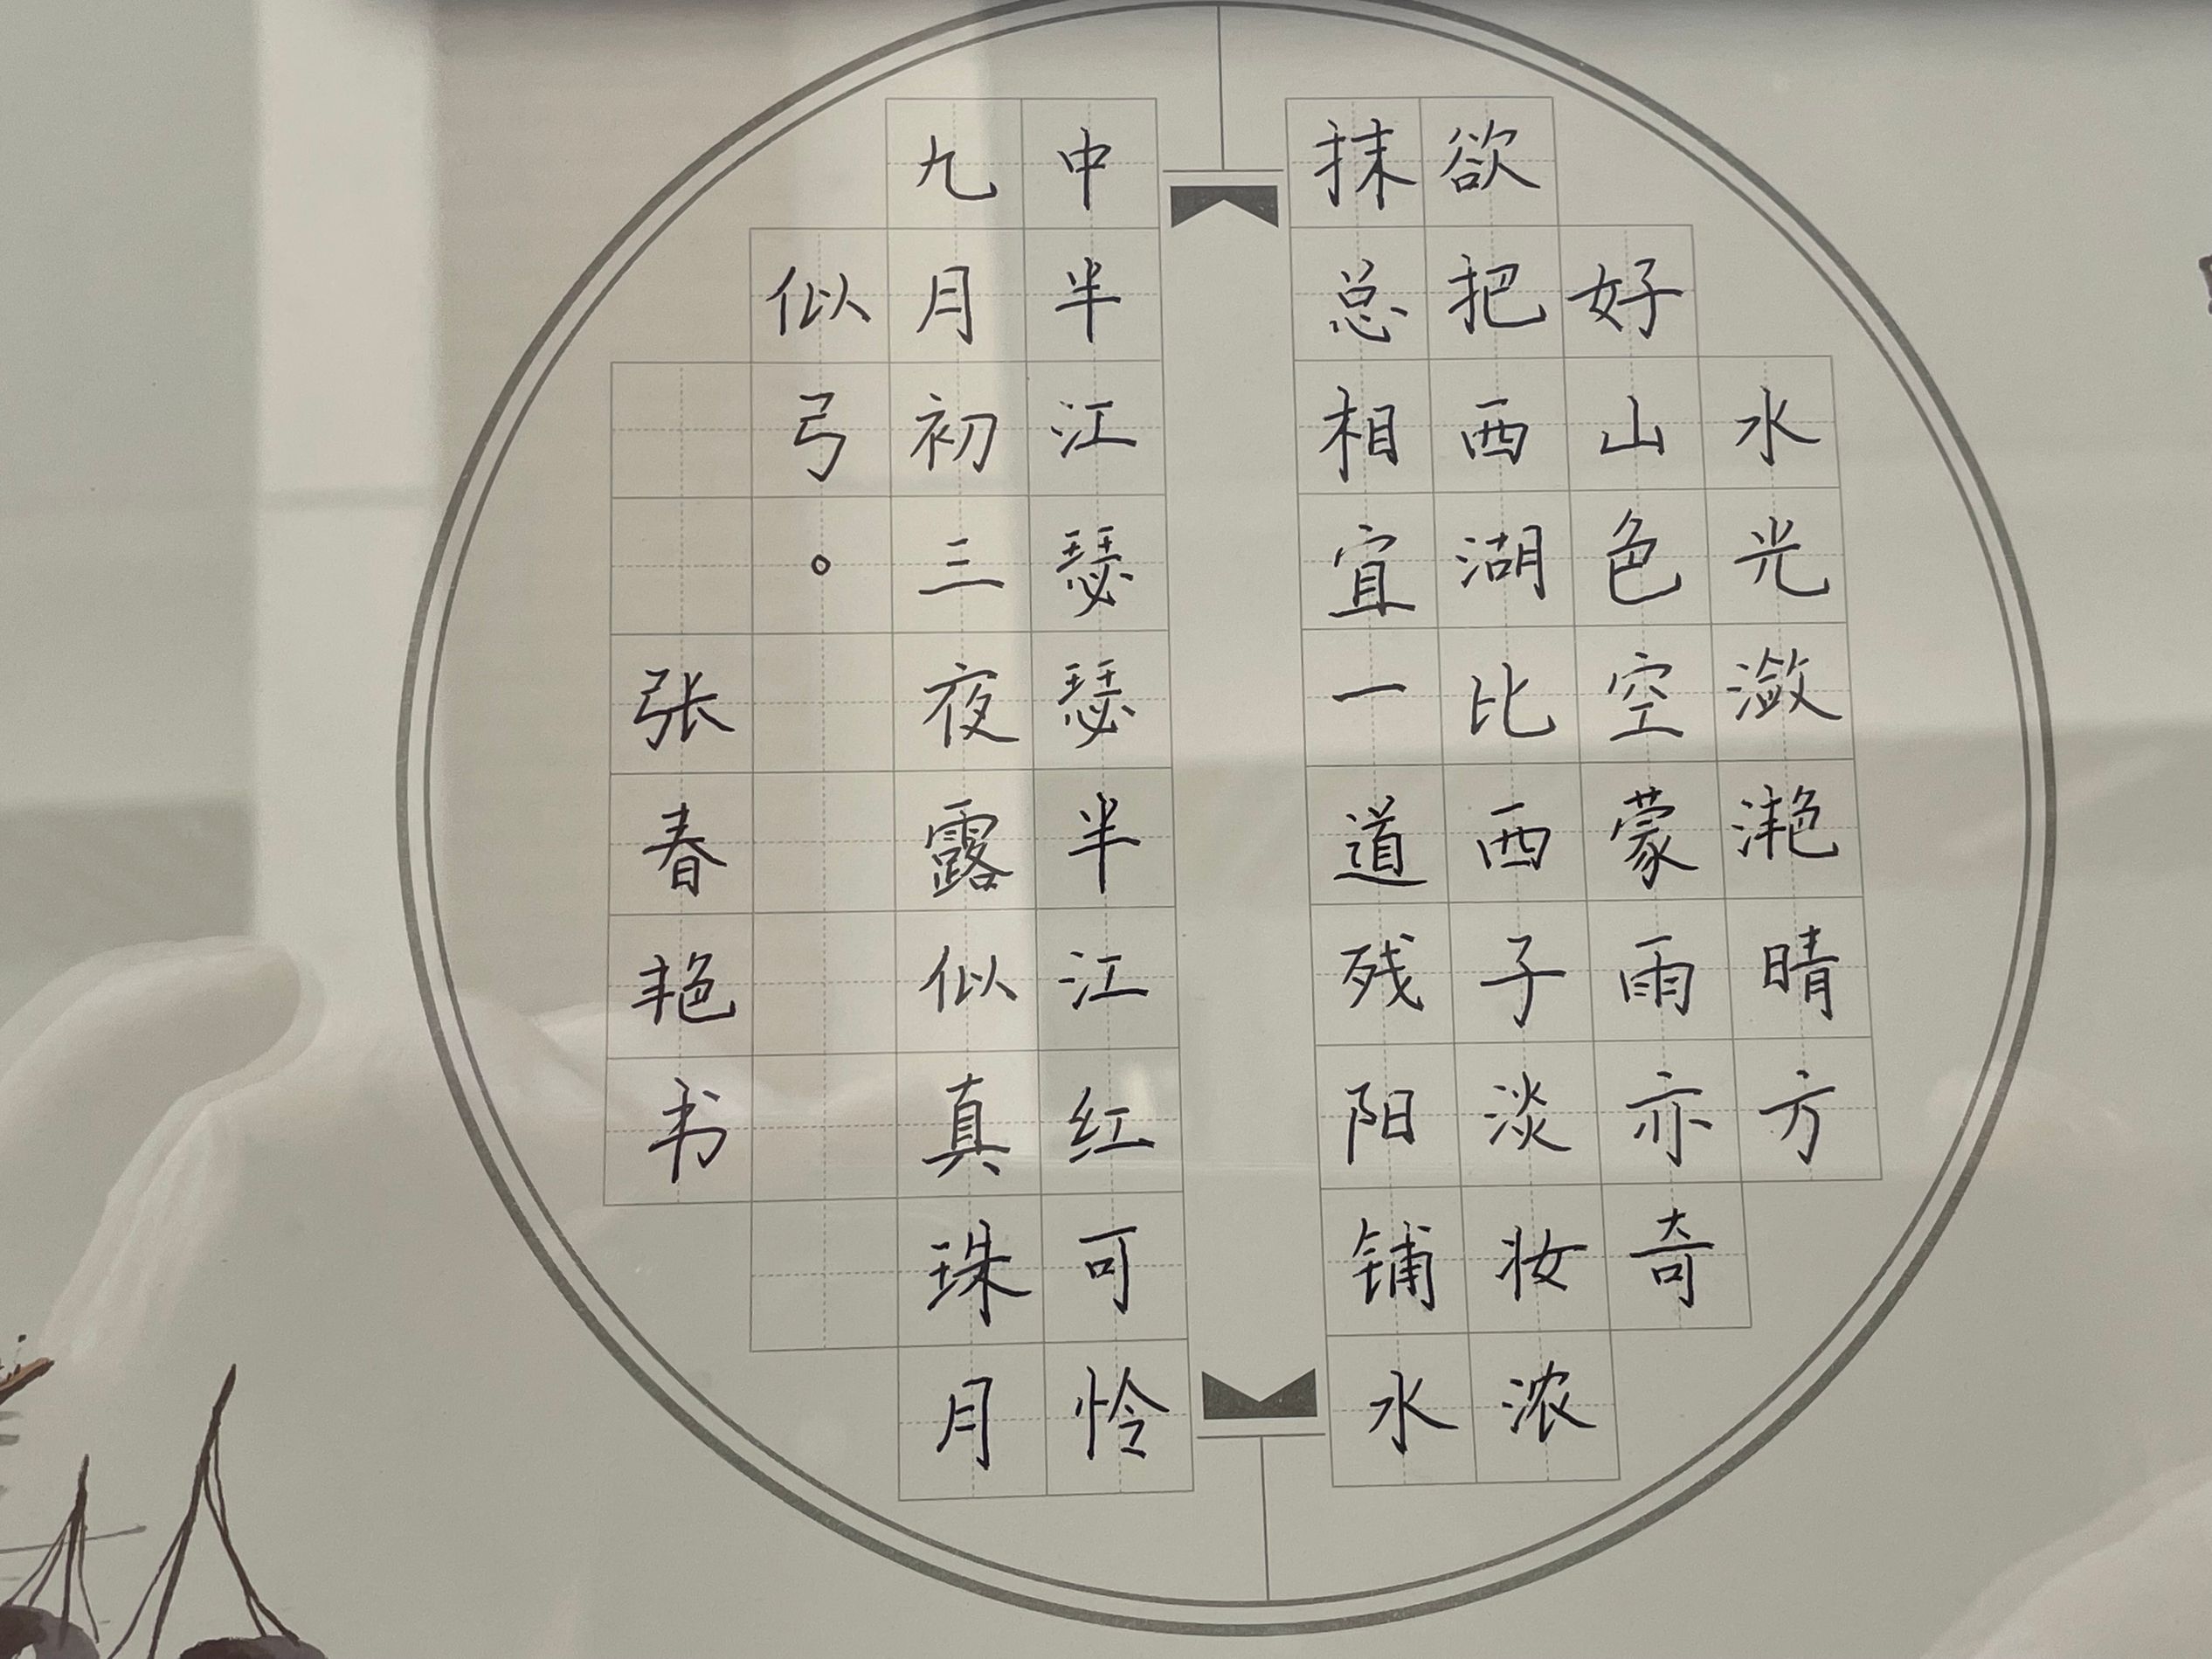 水光潋滟晴方
好山色空蒙雨亦奇
欲把西湖比西子淡妆浓
抹总相宜一道残阳铺水
中半江瑟瑟半江红可怜
九月初三夜露似真珠月
似弓。
张春艳书